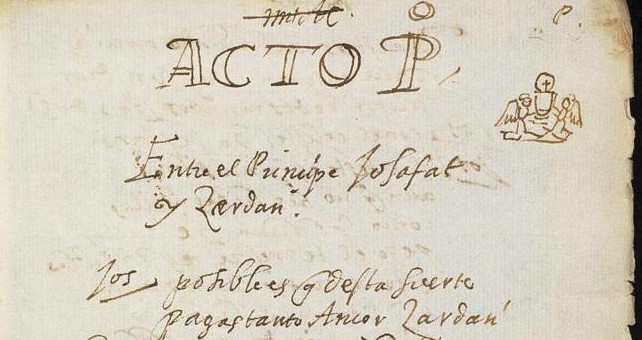 P.
ACTO P̊
Entre el Principe Josafat
y Zardan.
Jos posible es q̃ desta suerte
pagas tanto Amor Zardan